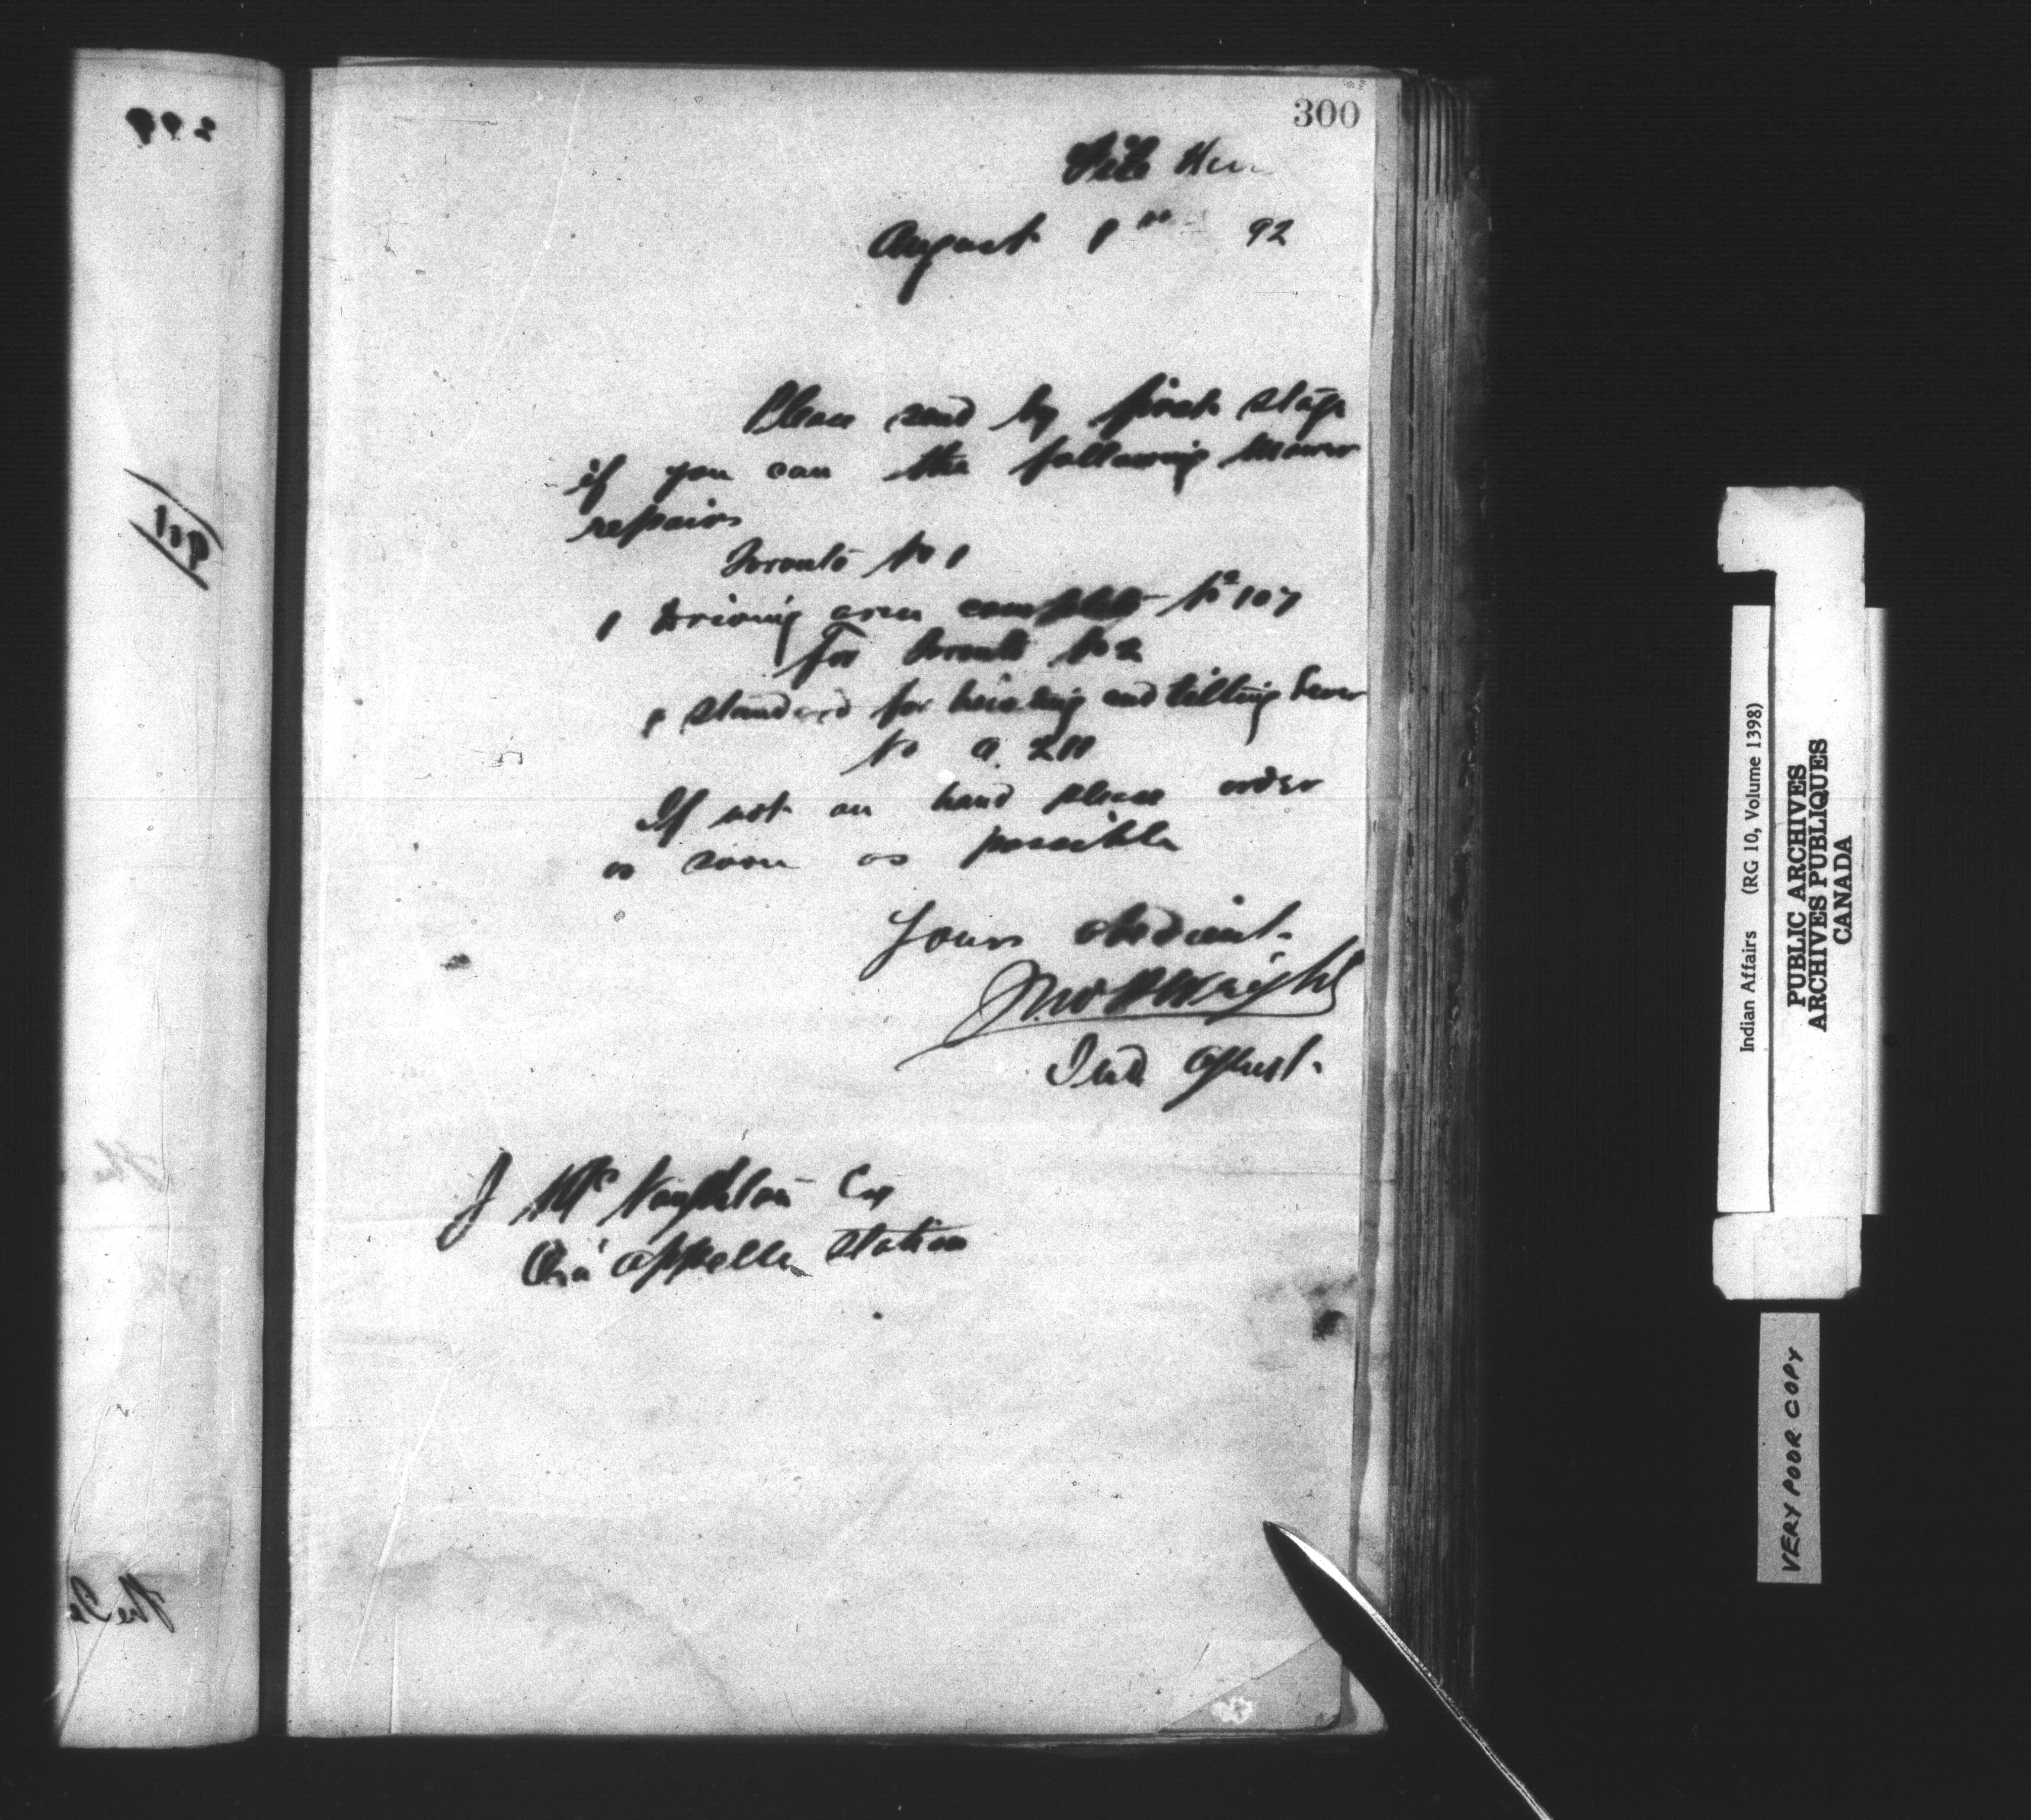 300
File Her
August 1st 92
Please send by first stage
if you can the following Mower
repairs
Toronto No 1
1 Driving arm complete No 107
for Toronto No 2
1 Standard for hoisting and tilting lever
No A. 211
If not on hand please order
as soon as possible
Yours obedient
Wright
Ind Agent.
J McNaughton Esq
Qu'appelle Station
Indian Affairs (RG 10, Volume 1398)
PUBLIC ARCHIVES
ARCHIVES PUBLIQUES
CANADA
VERY POOR COPY